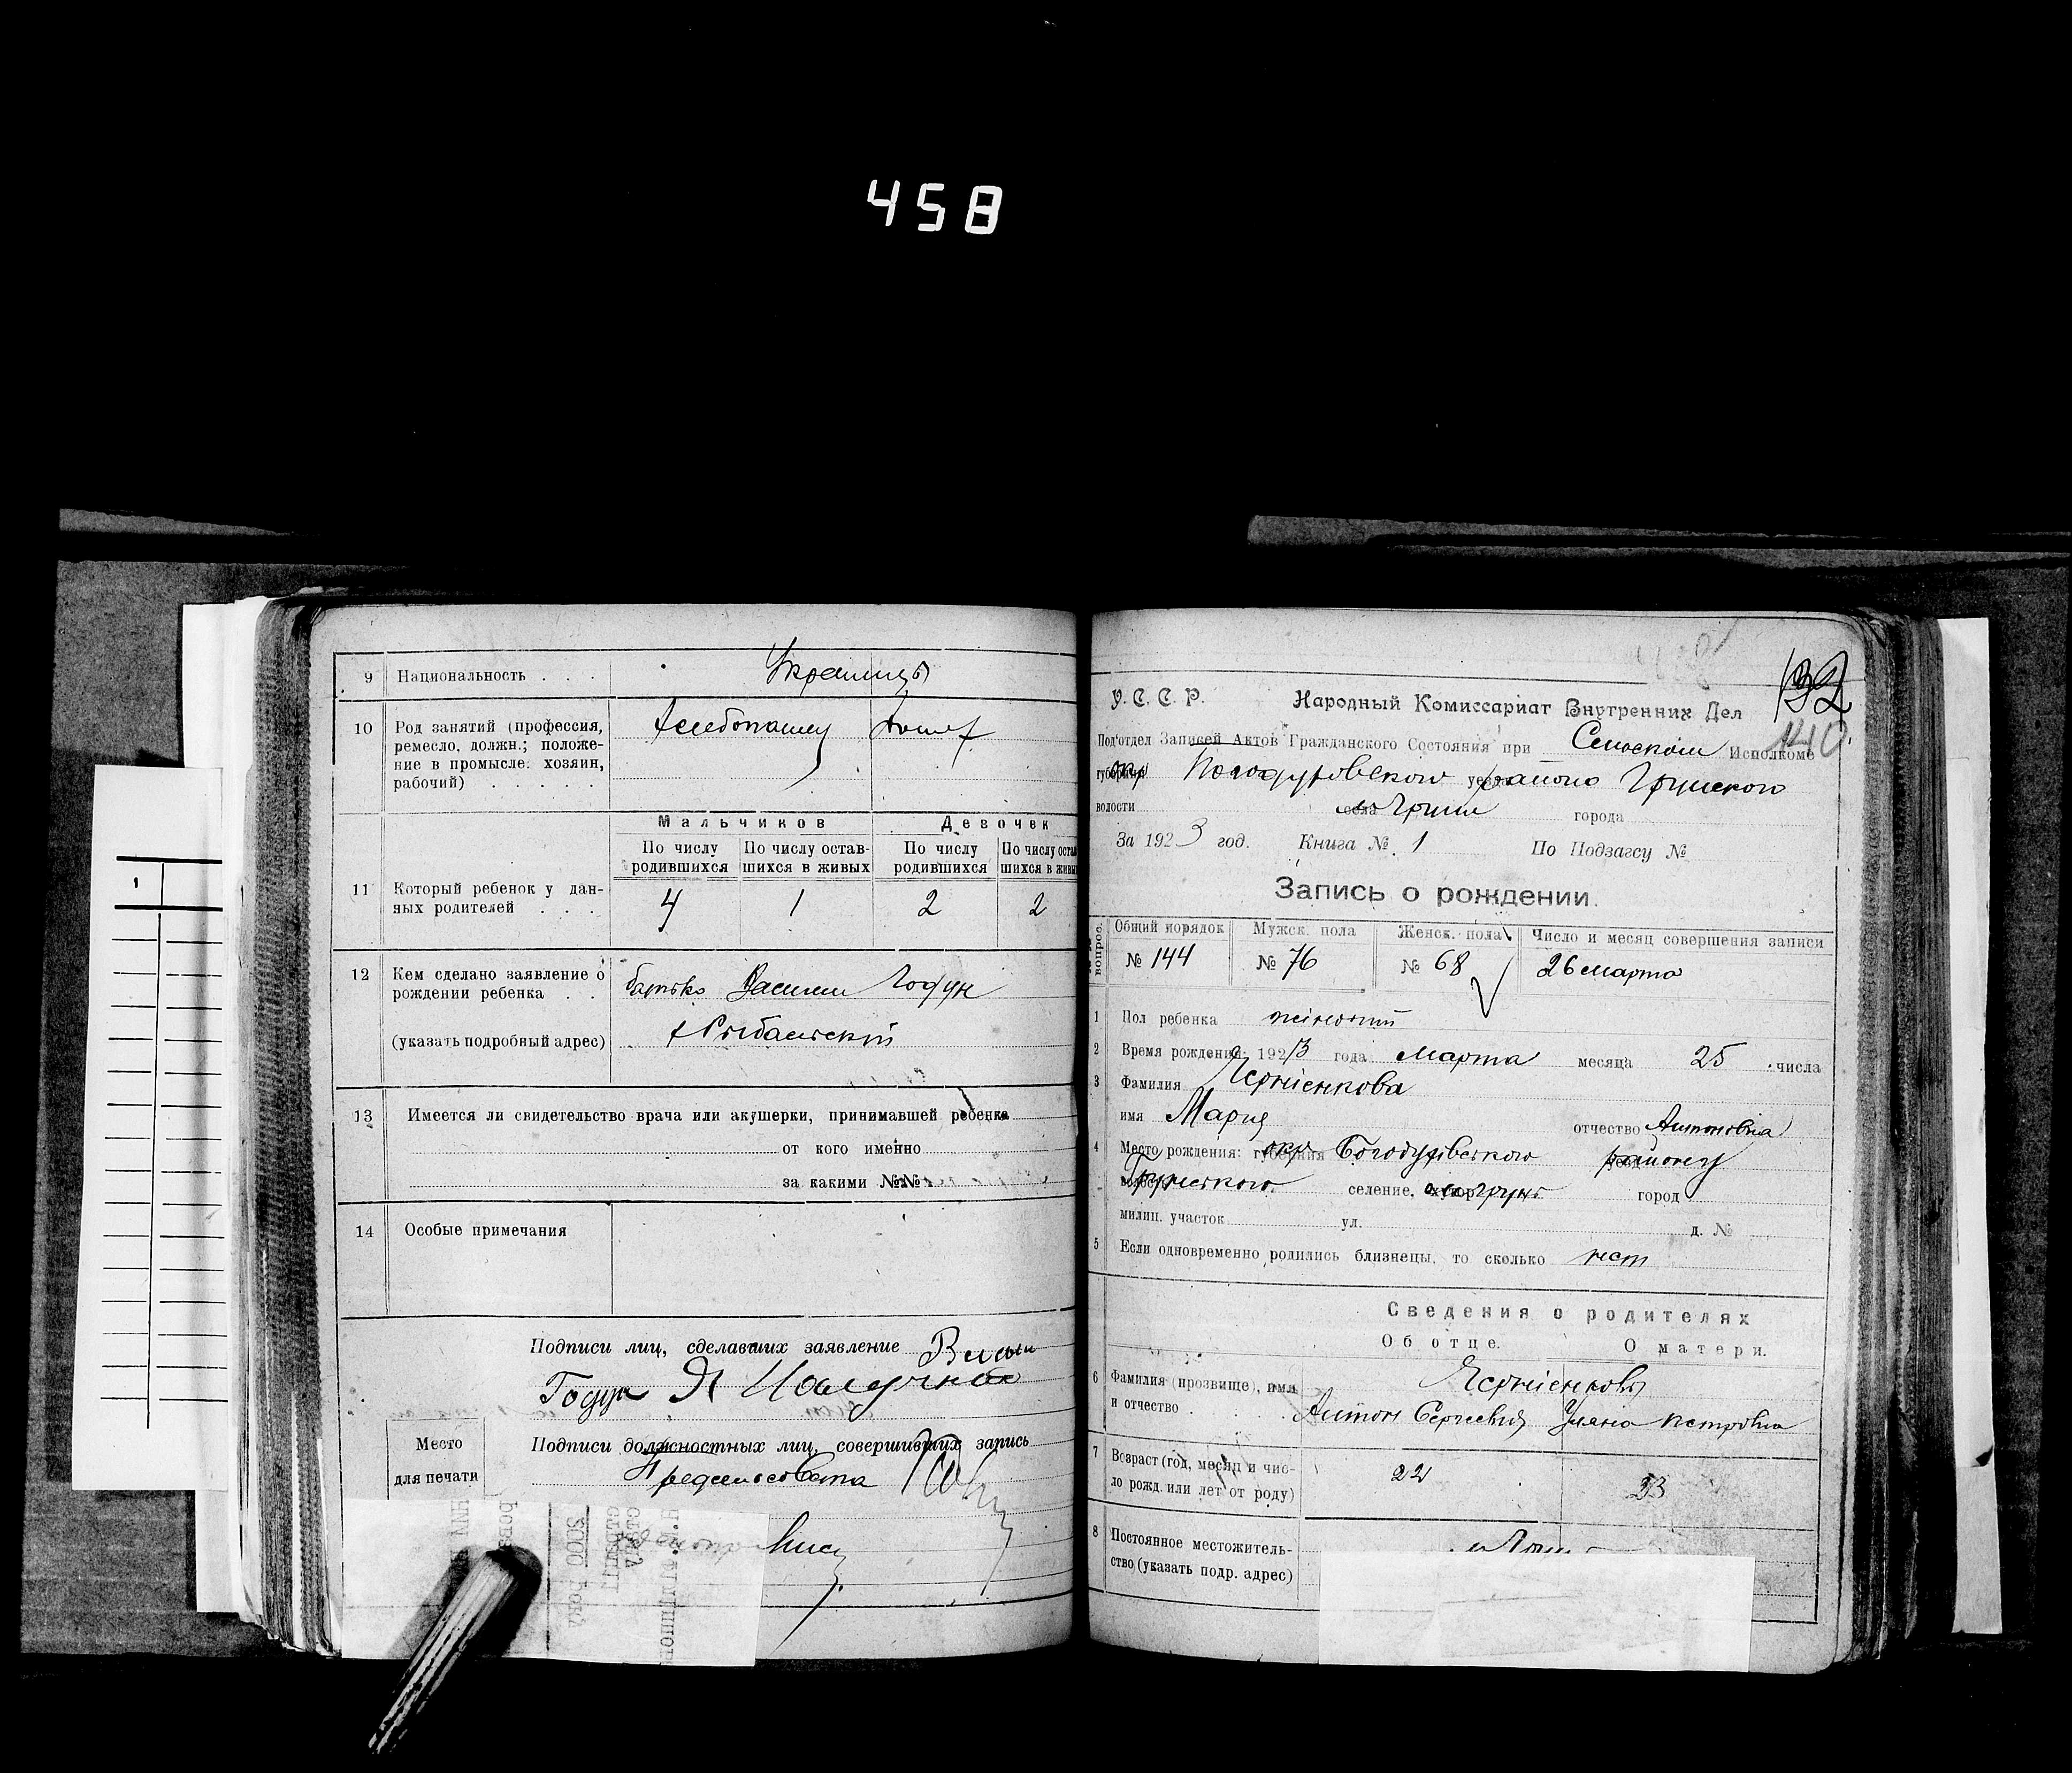 458
9 Национальность . . . Украинцы
10 Род занятий (профессия,
ремесло, должн.; положе-
ние в промысле: хозяин,
рабочий) . . . . .
Мальчиков Девочек
По числу родившихся По числу остав-шихся в живых По числу родившихся По числу остав
шихся в живых
11 Который ребенок у дан-
ных родителей . . . 4 1 2 2
12 Кем сделано заявление о
рождении ребенка . . батько Василий Годун
(указать подробный адрес)
13 Имеется ли свидетельство врача или акушерки, принимавшей ребенка
от кого именно
за какими №№
14 Особые примечания
Подписи лиц, сделавших заявление
Годун Я
Место
для печати
Подписи должностных лиц, совершивших запись
Предсельсовета
132
140
У. С. С. Р. Народный Комиссариат Внутренних Дел
Под'отдел Записей Актов Гражданского Состояния при Сельском Исполкоме
губернии окр Богодуховского района Грунского
волости села Груни города
За 1923 год. Книга № 1 По Подзагсу №
Запись о рождении.
вопрос. Общий порядок Мужск. пола Женск. пола Число и месяц совершения записи
№ 144 № 76 № 68 26 марта
1 Пол ребенка жіночий
2 Время рождения: 1923 года марта месяца 25 числа
3 Фамилия Чернієнкова
имя Мария отчество Антоновна
4 Место рождения: губерния окр Богодуховского району
Грунского селение, хутор Грунь город
милиц. участок ул. д. №
5 Если одновременно родились близнецы, то сколько нет
Сведения о родителях
Об отце. О матери.
6 Фамилия (прозвище), имя Чернієнковы
и отчество . . . . Антон Сергеевич Уляна Петровна
7 Возраст (год, месяц и чис-
ло рожд. или лет от роду) 22 33
8 Постоянное местожитель-
ство (указать подр. адрес)